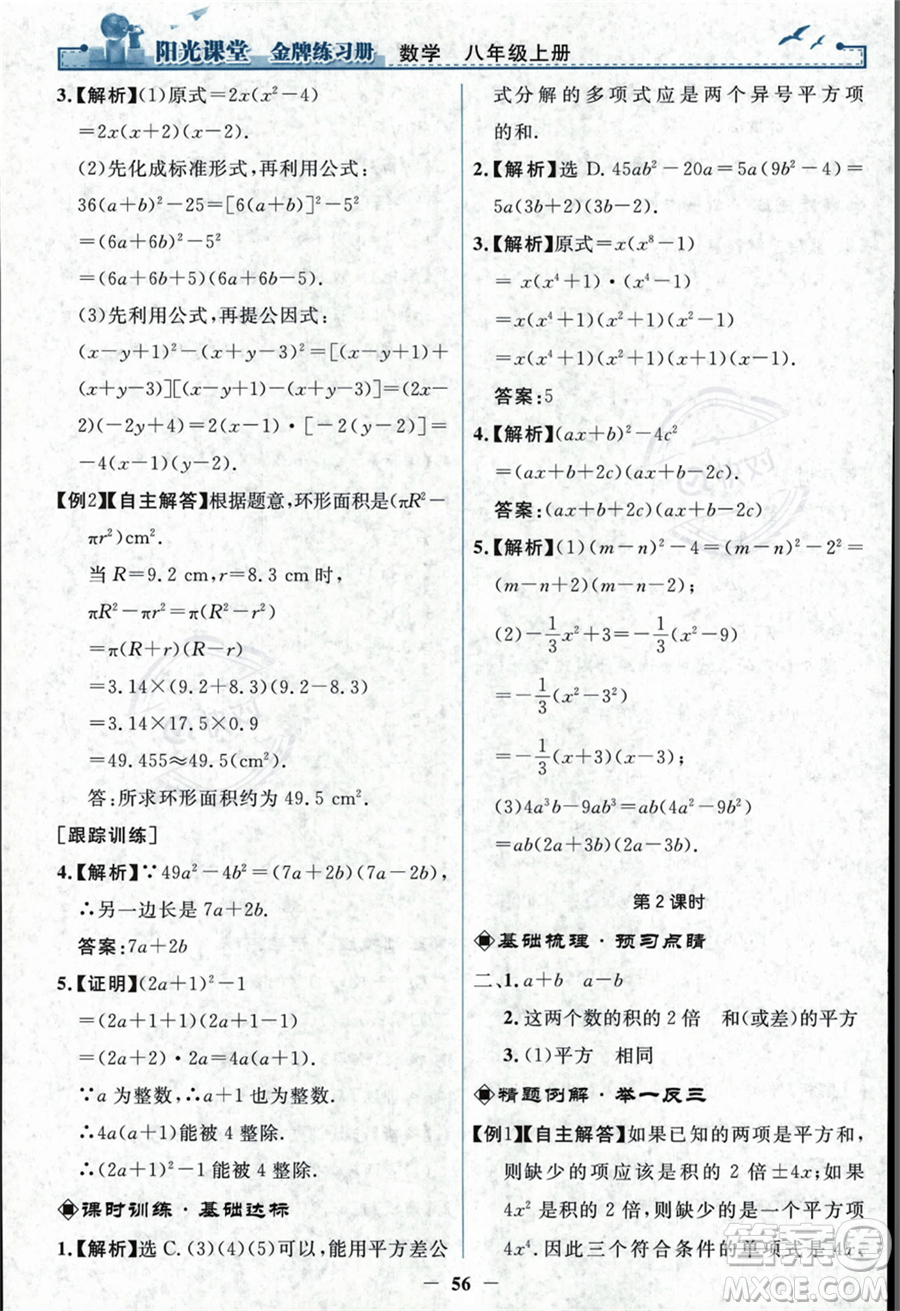 阳光课堂 金牌练习册 数学 八年级上册
3.【解析】(1)原式=2x(x²-4)
=2x(x+2)(x-2).
(2)先化成标准形式,再利用公式:
36(a+b)²-25=[6(a+b)]²-5²
=(6a+6b)²-5²
=(6a+6b+5)(6a+6b-5).
(3)先利用公式,再提公因式:
(x-y+1)²-(x+y-3)²=[(x-y+1)+
(x+y-3)][(x-y+1)-(x+y-3)]=(2x-
2)(-2y+4)=2(x-1)·[-2(y-2)]=
-4(x-1)(y-2).
【例2】【自主解答】根据题意,环形面积是(πR²-
πr²)cm².
当R=9.2 cm,r=8.3 cm时,
πR²-πr²=π(R²-r²)
=π(R+r)(R-r)
=3.14×(9.2+8.3)(9.2-8.3)
=3.14×17.5×0.9
=49.455≈49.5(cm²)
答:所求环形面积约为49.5 cm².
[跟踪训练]
4.【解析】∵49a²-4b²=(7a+2b)(7a-2b),
∴另一边长是7a+2b.
答案:7a+2b
5.【证明】(2a+1)²-1
=(2a+1+1)(2a+1-1)
=(2a+2)·2a=4a(a+1).
∵a为整数,∴a+1也为整数.
∴4a(a+1)能被4整除.
∴(2a+1)²-1能被4整除.
课时训练·基础达标
1.【解析】选C.(3)(4)(5)可以,能用平方差公
式分解的多项式应是两个异号平方项
的和.
2.【解析】选D.45ab²-20a=5a(9b²-4)=
5a(3b+2)(3b-2).
3.【解析】原式=x(x⁸-1)
=x(x⁴+1)·(x⁴-1)
=x(x⁴+1)(x²+1)(x²-1)
=x(x⁴+1)(x²+1)(x+1)(x-1).
答案:5
4.【解析】(ax+b)²-4c²
=(ax+b+2c)(ax+b-2c).
答案:(ax+b+2c)(ax+b-2c)
5.【解析】(1)(m-n)²-4=(m-n)²-2²=
(m-n+2)(m-n-2);
(2)-1/3x²+3=-1/3(x²-9)
=-1/3(x²-3²)
=-1/3(x+3)(x-3);
(3)4a³b-9ab³=ab(4a²-9b²)
=ab(2a+3b)(2a-3b).
第2课时
基础梳理·预习点睛
二、1.a+b a-b
2.这两个数的积的2倍 和(或差)的平方
3.(1)平方 相同
精题例解·举一反三
【例1】【自主解答】如果已知的两项是平方和,
则缺少的项应该是2倍±4x;如果
4x²是2倍,则缺少的是一个平方项
4x⁴.因此三个符合条件的单项式是4x、
56
答案圈
MXQE.COM